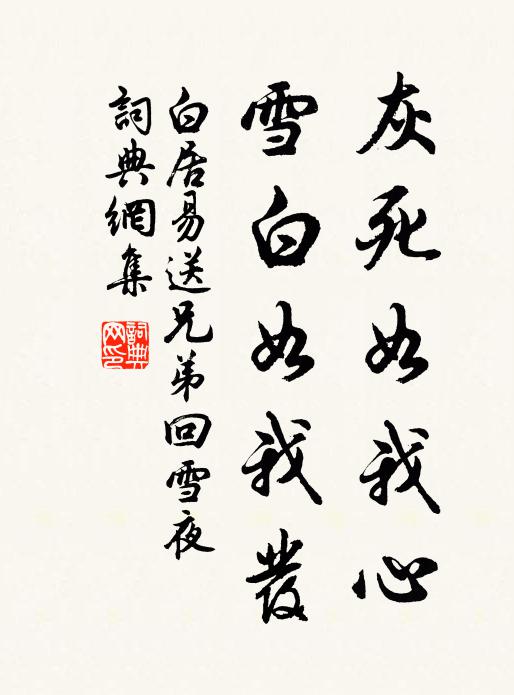 灰死如我心
雪白如我發
白居易送兄弟回雪夜
詞典網集
詞典網印